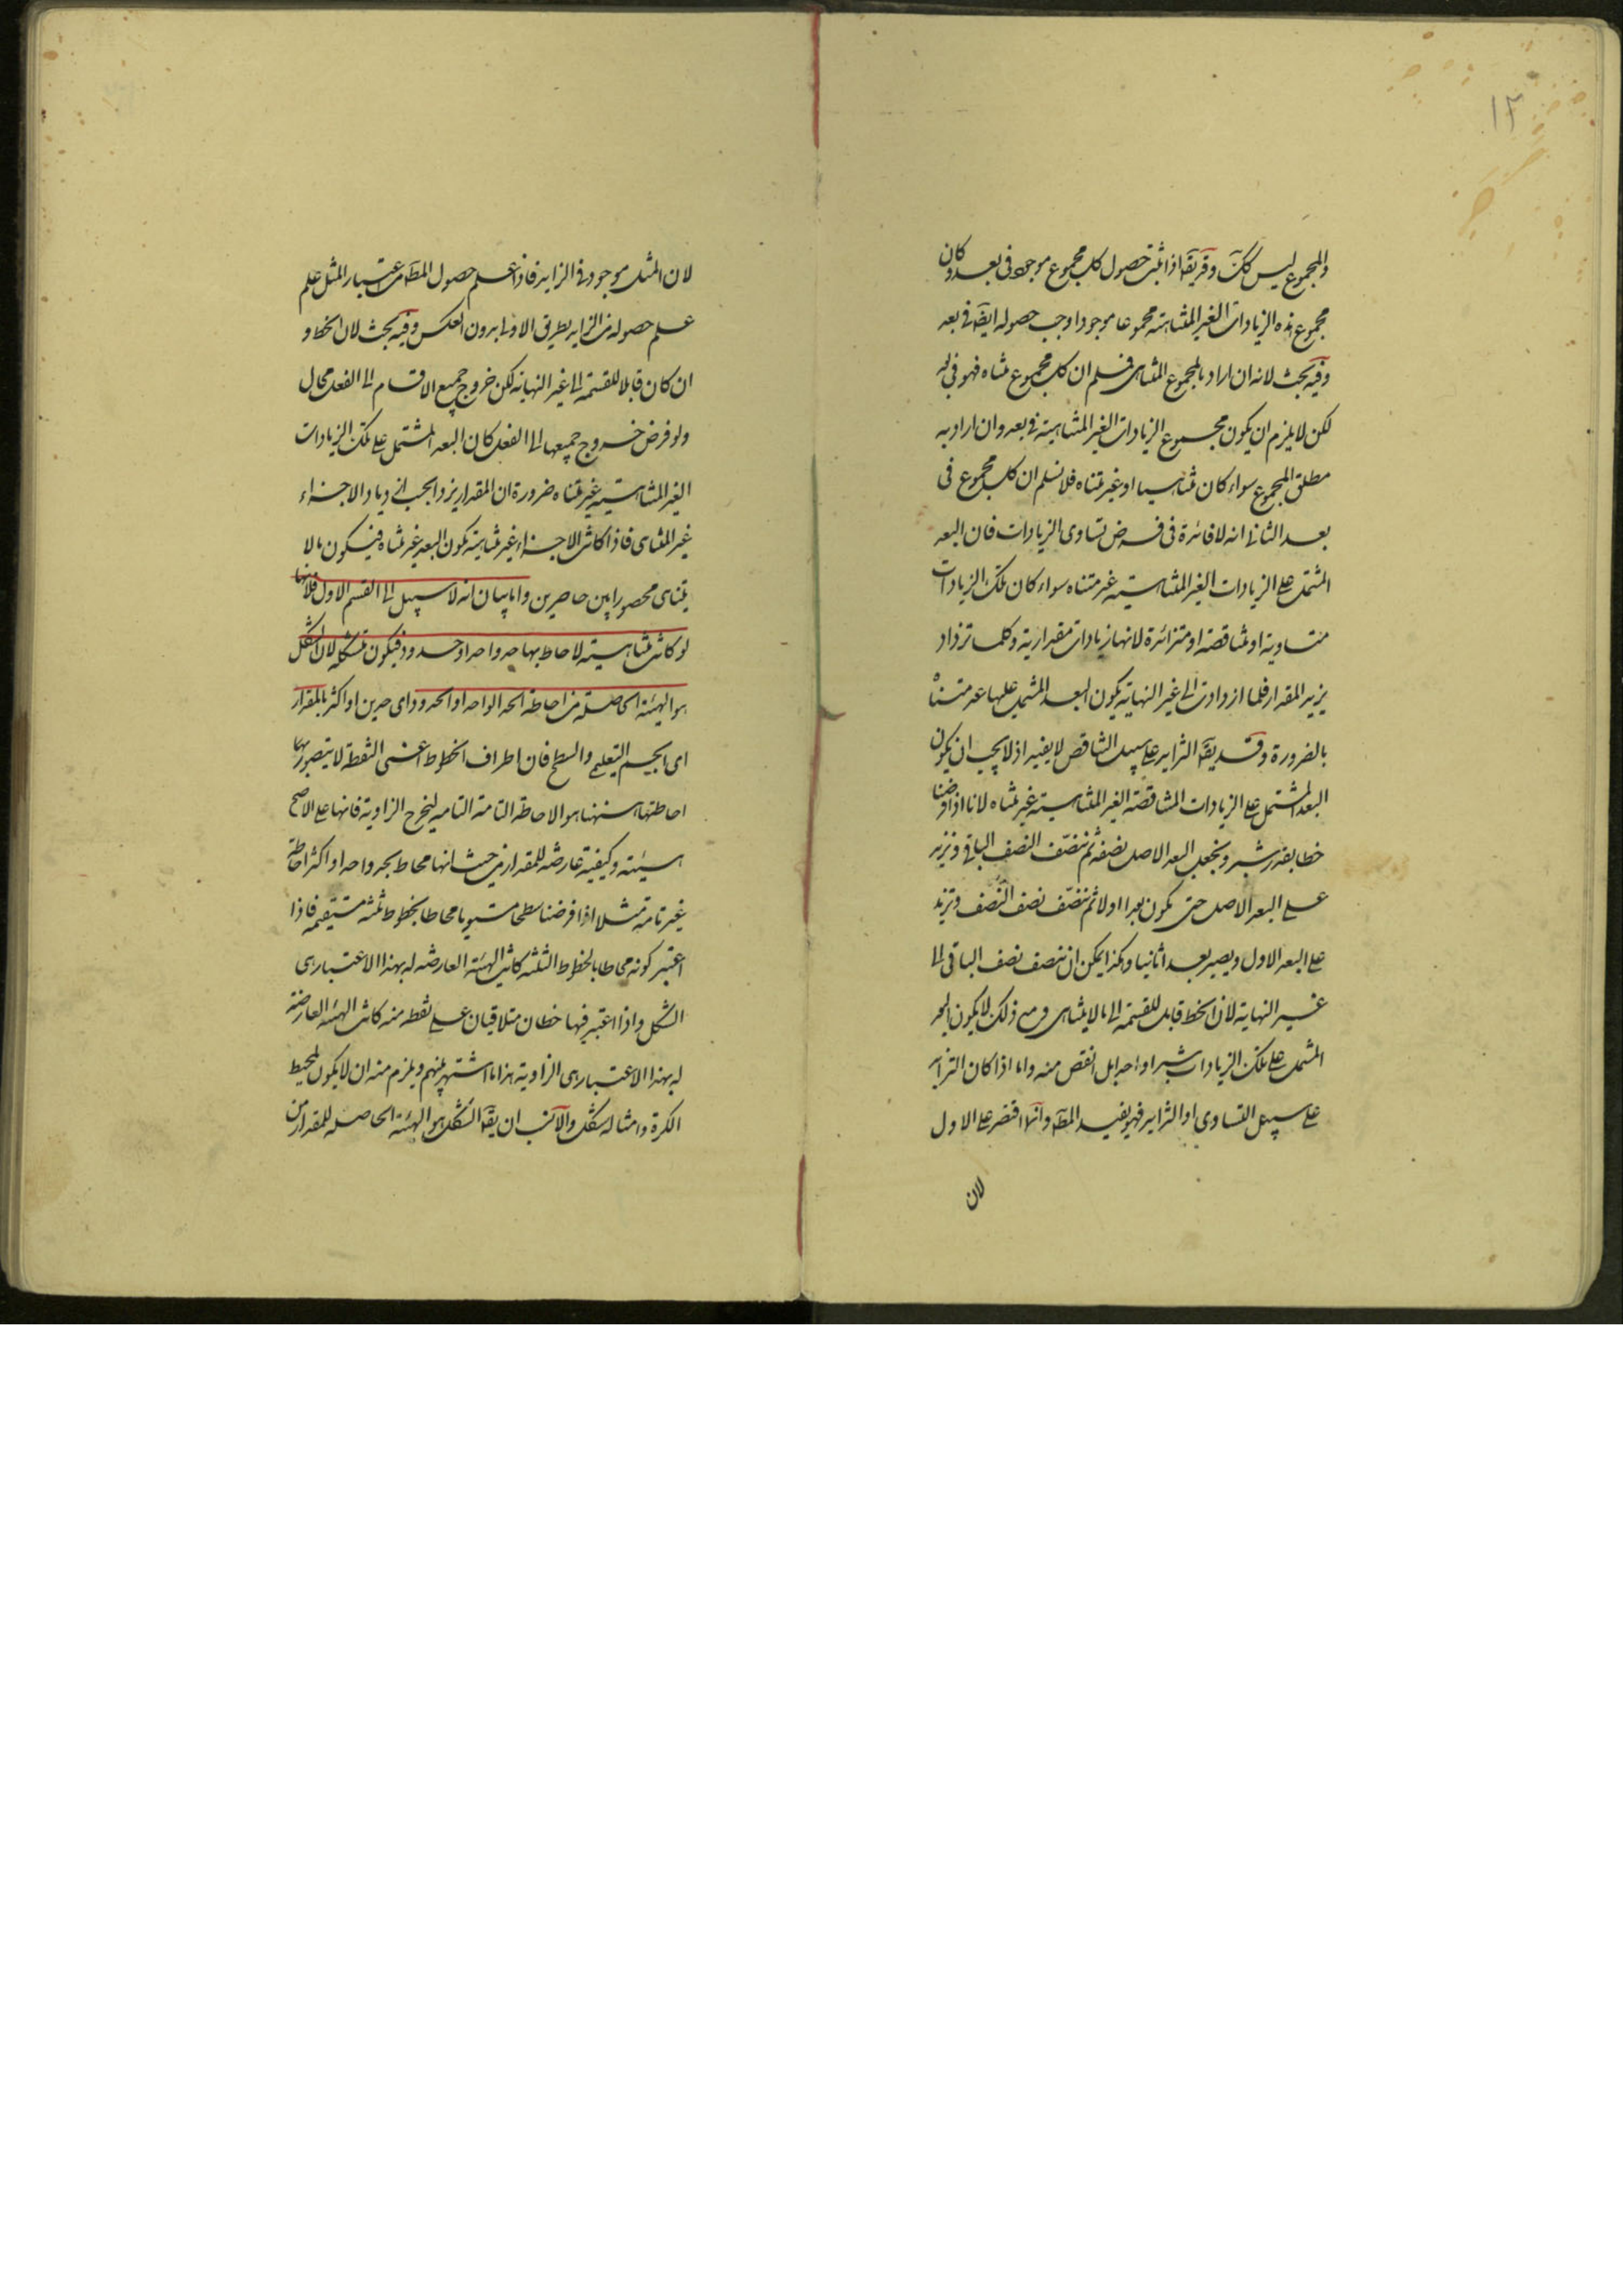 ١٢
والمجموع ليس كك وقد يقال اذا ثبت حصول كل مجموع موجود في بعد وكان
مجموع هذه الزيادات الغير المتناهية مجموعا موجودا وجب حصوله ايضا في بعد
وفيه بحث لانه ان اراد بالمجموع المتناهى فسلم ان كل مجموع متناه فهو في بعد
لكن لا يلزم ان يكون مجموع الزيادات الغير المتناهية في بعد وان اراد به
مطلق المجموع سواء كان متناهيا او غير متناه فلا نسلم ان كل مجموع في
بعد الثانى انه لا فائدة فى فرض تساوى الزيادات فان البعد
المشتمل على الزيادات الغير المتناهية غير متناه سواء كان تلك الزيادات
متساوية او متناقصة او متزائدة لانها زيادات مقدارية وكلما تزداد
يزيد المقدار فلما ازدادت الى غير النهاية يكون البعد المشتمل عليها غير متناه
بالضرورة وقد يقال التزايد على سبيل التناقص لا يفيد اذ لا يجب ان يكون
البعد المشتمل على الزيادات المتناقصة الغير المتناهية غير متناه لانا اذا فرضنا
خطا بقدر شبر ونجعل البعد الاصل نصفه ثم ننصّف النصف الباقى ونزيد
على البعد الاصل حتى يكون بعدا اولا ثم ننصّف نصف النصف ونزيد
على البعد الاول ويصير بعدا ثانيا وهكذا يمكن ان ننصف نصف الباقى الى
غير النهاية لان الخط قابل للقسمة الى ما لا يتناهى ومع ذلك لا يكون البعد
المشتمل على تلك الزيادات شبرا واحدا بل انقص منه واما اذا كان التزايد
على سبيل التساوى او التزايد فهو يفيد المط وانما اقتصر على الاول
لان
لان المثل موجود في الزايد فاذا علم حصول المط من اعتبار المثل علم
علم حصوله من الزايد بطريق الاولى بدون العكس وفيه بحث لان الخط و
ان كان قابلا للقسمة الى غير النهاية لكن خروج جميع الاقسام الى الفعل محال
ولو فرض خروج جميعها الى الفعل كان البعد المشتمل على تلك الزيادات
الغير المتناهية غير متناه ضرورة ان المقدار يزداد بحسب ازدياد الاجزاء
غير المتناهى فاذا كانت الاجزاء غير متناهية يكون البعد غير متناه فيكون ما لا
يتناهى محصورا بين حاصرين واما بيان انه لا سبيل الى القسم الاول فلانها
لو كانت متناهية لاحاط بها حد واحد او حدود فيكون متشكلة لان الشكل
هو الهيئة الحاصلة من احاطة الحد الواحد او الحدود اى حدين او اكثر بالمقدار
اى الجسم التعليمى والسطح فان اطراف الخطوط اعنى النقطة لا يتصور بها
احاطتها اسنتها هو الاحاطة التامة التامه ليخرج الزاوية فانها على الاصح
هيئة وكيفية عارضة للمقدار من حيث انها محاط بحد واحد او اكثر احاطة
غير تامة مثلا اذا فرضنا سطحا مستويا محاطا بخطوط ثلثة مستقيمه فاذا
اعتبر كونه محاطا بالخطوط الثلثه كانت الهيئة العارضه له بهذا الاعتبار هى
الشكل واذا اعتبر فيها خطان متلاقيان على نقطه منه كانت الهيئة العارضة
له بهذا الاعتبار هى الزاوية هذا ما اشتهر بينهم ويلزم منه ان لا يكون لمحيط
الكرة وامثاله شكل والانسب ان يقال الشكل هو الهيئة الحاصلة للمقدار من